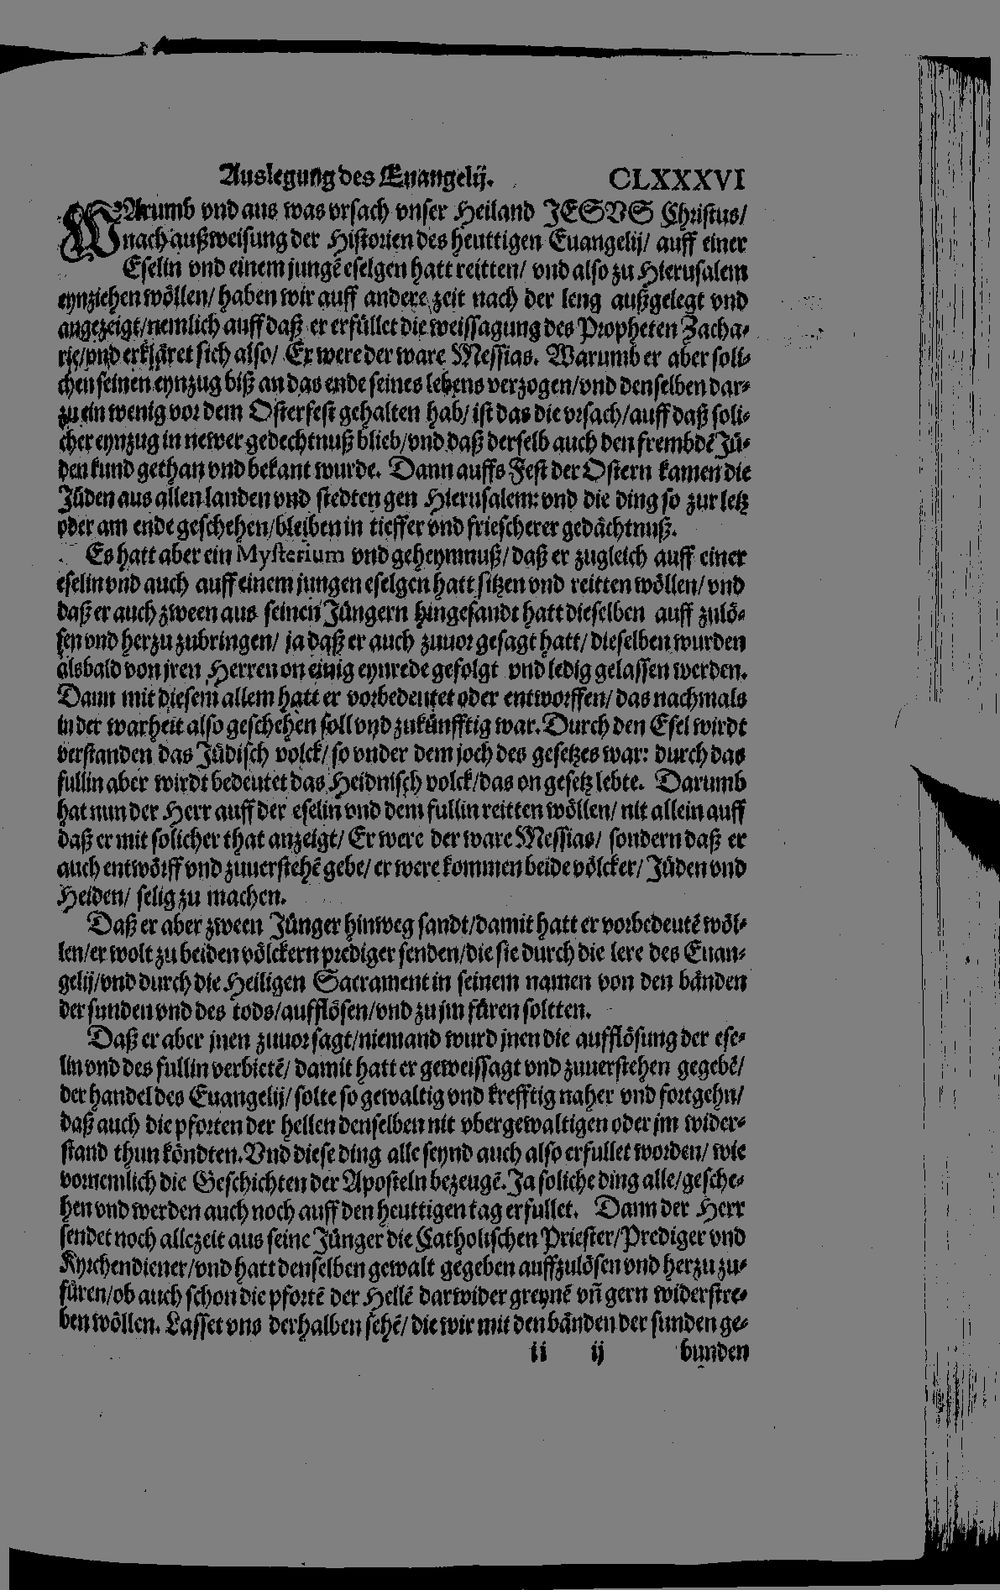 Auslegung des Euangelij. CLXXXVI
WArumb vnd aus was vrsach vnser Heiland JESVS Christus/
nach außweisung der Historien des heuttigen Euangelij/ auff einer
Eselin vnd einem jungẽ eselgen hatt reitten/ vnd also zu Hierusalem
eynziehen wöllen/ haben wir auff andere zeit nach der leng außgelegt vnd
angezeigt/nemlich auff daß er erfüllet die weissagung des Propheten Zacha-
rie/vnd erkläret sich also/ Er were der ware Messias. Warumb er aber soli-
chen seinen eynzug biß an das ende seines lebens verzogen/vnd denselben dar-
zu ein wenig vor dem Osterfest gehalten hab/ ist das die vrsach/auff daß soli-
cher eynzug in newer gedechtnuß blieb/vnd daß derselb auch den frembdẽ Jü-
den kund gethan vnd bekant wurde. Dann auffs Fest der Ostern kamen die
Jüden aus allen landen vnd stedten gen Hierusalem: vnd die ding so zur letz
oder am ende geschehen/bleiben in tieffer vnd friescherer gedächtnuß.
Es hatt aber ein Mysterium vnd geheymnuß/ daß er zugleich auff einer
eselin vnd auch auff einem jungen eselgen hatt sitzen vnd reitten wöllen/ vnd
daß er auch zween aus seinen Jüngern hingesandt hatt dieselben auff zulö-
sen vnd herzu zubringen/ ja daß er auch zuuor gesagt hatt/ dieselben wurden
alsbald von jren Herren on einig eynrede gefolgt vnd ledig gelassen werden.
Dann mit diesem allem hatt er vorbedeutet oder entworffen/ das nachmals
in der warheit also geschehen soll vnd zukünfftig war. Durch den Esel wirdt
verstanden das Jüdisch volck/ so vnder dem joch des gesetzes war: durch das
fullin aber wirdt bedeutet das Heidnisch volck/das on gesetz lebte. Darumb
hat nun der Herr auff der eselin vnd dem fullin reitten wöllen/ nit allein auff
daß er mit solicher that anzeigt/ Er were der ware Messias/ sondern daß er
auch entwörff vnd zuuerstehẽ gebe/ er were kommen beide völcker/ Jüden vnd
Heiden/ selig zu machen.
Daß er aber zween Jünger hinweg sandt/damit hatt er vorbedeutẽ wöl-
len/er wolt zu beiden völckern prediger senden/die sie durch die lere des Euan-
gelij/vnd durch die Heiligen Sacrament in seinem namen von den bänden
der sunden vnd des tods/aufflösen/vnd zu jm füren soltten.
Daß er aber jnen zuuor sagt/niemand wurd jnen die aufflösung der ese-
lin vnd des fullin verbietẽ/ damit hatt er geweissagt vnd zuuerstehen gegebẽ/
der handel des Euangelij/ solte so gewaltig vnd krefftig naher vnd fortgehn/
daß auch die pforten der hellen denselben nit vbergewaltigen oder jm wider-
stand thun köndten. Vnd diese ding alle seynd auch also erfullet worden/ wie
vornemlich die Geschichten der Aposteln bezeugẽ. Ja soliche ding alle/gesche-
hen vnd werden auch noch auff den heuttigen tag erfullet. Dann der Herr
sendet noch allezeit aus seine Jünger die Catholischen Priester/Prediger vnd
Kyrchendiener/vnd hatt denselben gewalt gegeben auffzulösen vnd herzu zu-
füren/ob auch schon die pfortẽ der Hellẽ darwider greynẽ vñ gern widerstre-
ben wöllen. Lasset vns derhalben sehẽ/ die wir mit den bänden der sunden ge-
ii ij bunden